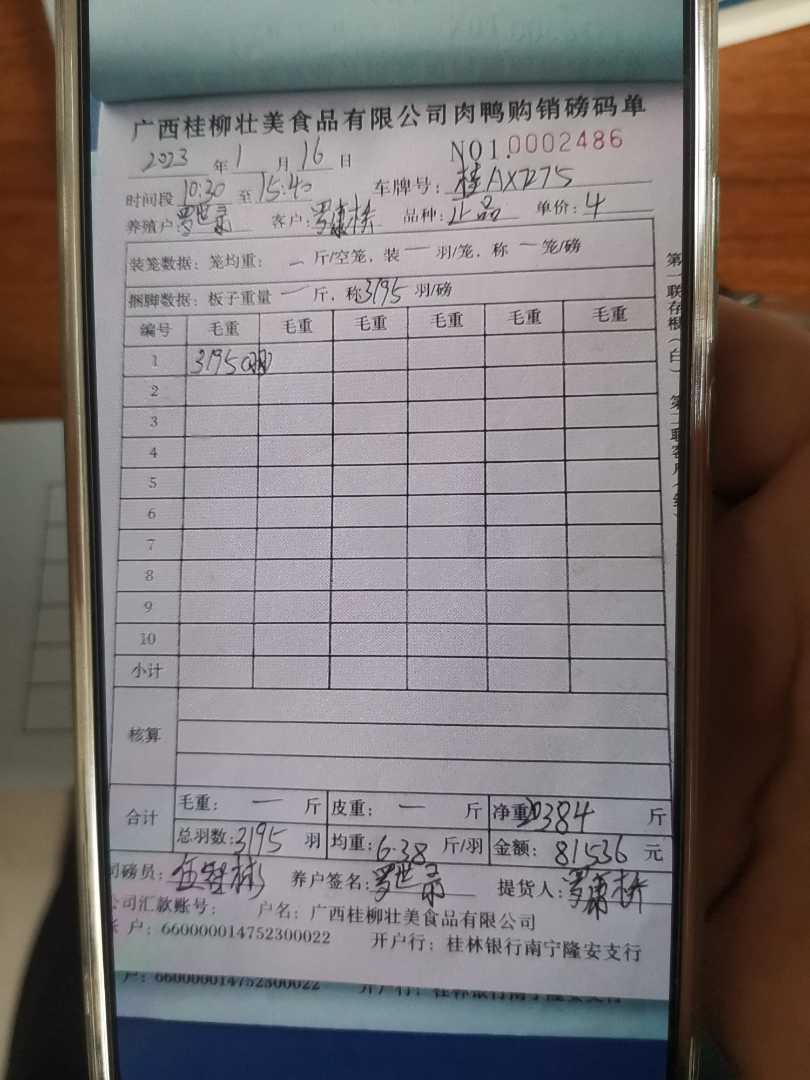 广西桂柳壮美食品有限公司肉鸭购销磅码单
2023 年 1 月 16 日 NO1.0002486
时间段 10:30 至 15:40 车牌号: 桂AX7275
养殖户: 罗世录 客户: 罗康桥 品种: 正品 单价: 4
装笼数据: 笼均重: 一 斤/空笼, 装 一 羽/笼, 称 一 笼/磅
捆脚数据: 板子重量 一 斤, 称 3195 羽/磅
编号 毛重 毛重 毛重 毛重 毛重 毛重
1 3195(羽)
2
3
4
5
6
7
8
9
10
小计
核算
合计 毛重: 一 斤 皮重: 一 斤 净重: 20384 斤
总羽数: 3195 羽 均重: 6.38 斤/羽 金额: 81536 元
司磅员: 养户签名: 罗世录 提货人: 罗康桥
公司汇款账号: 户名: 广西桂柳壮美食品有限公司
户: 660000014752300022 开户行: 桂林银行南宁隆安支行
户: 660000014752300022 开户行: 桂林银行南宁隆安支行
第一联存根(白) 第二联客户(红)